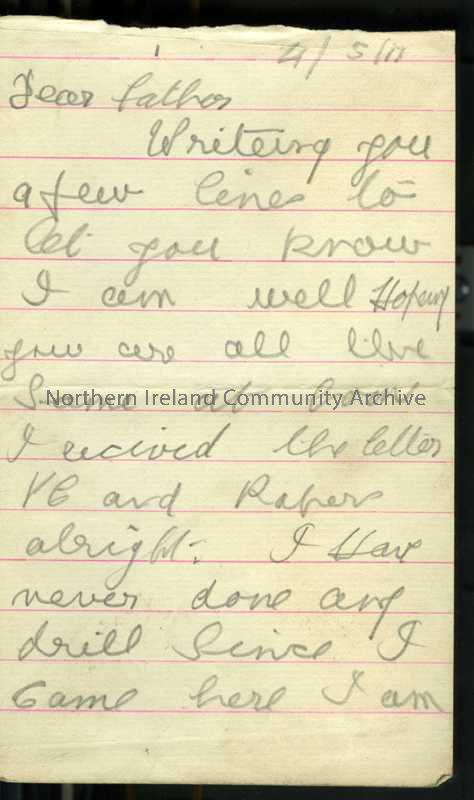 4/5/17
Dear father
Writeing you
a few lines to
let you know
I am well Hoping
you are all the
Same at
Northern Ireland Community Archive
I recived the letter
and Papers
alright. I Have
never done any
drill Since I
Came here I am